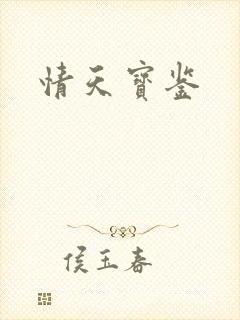 情天寳鉴
侯玉春